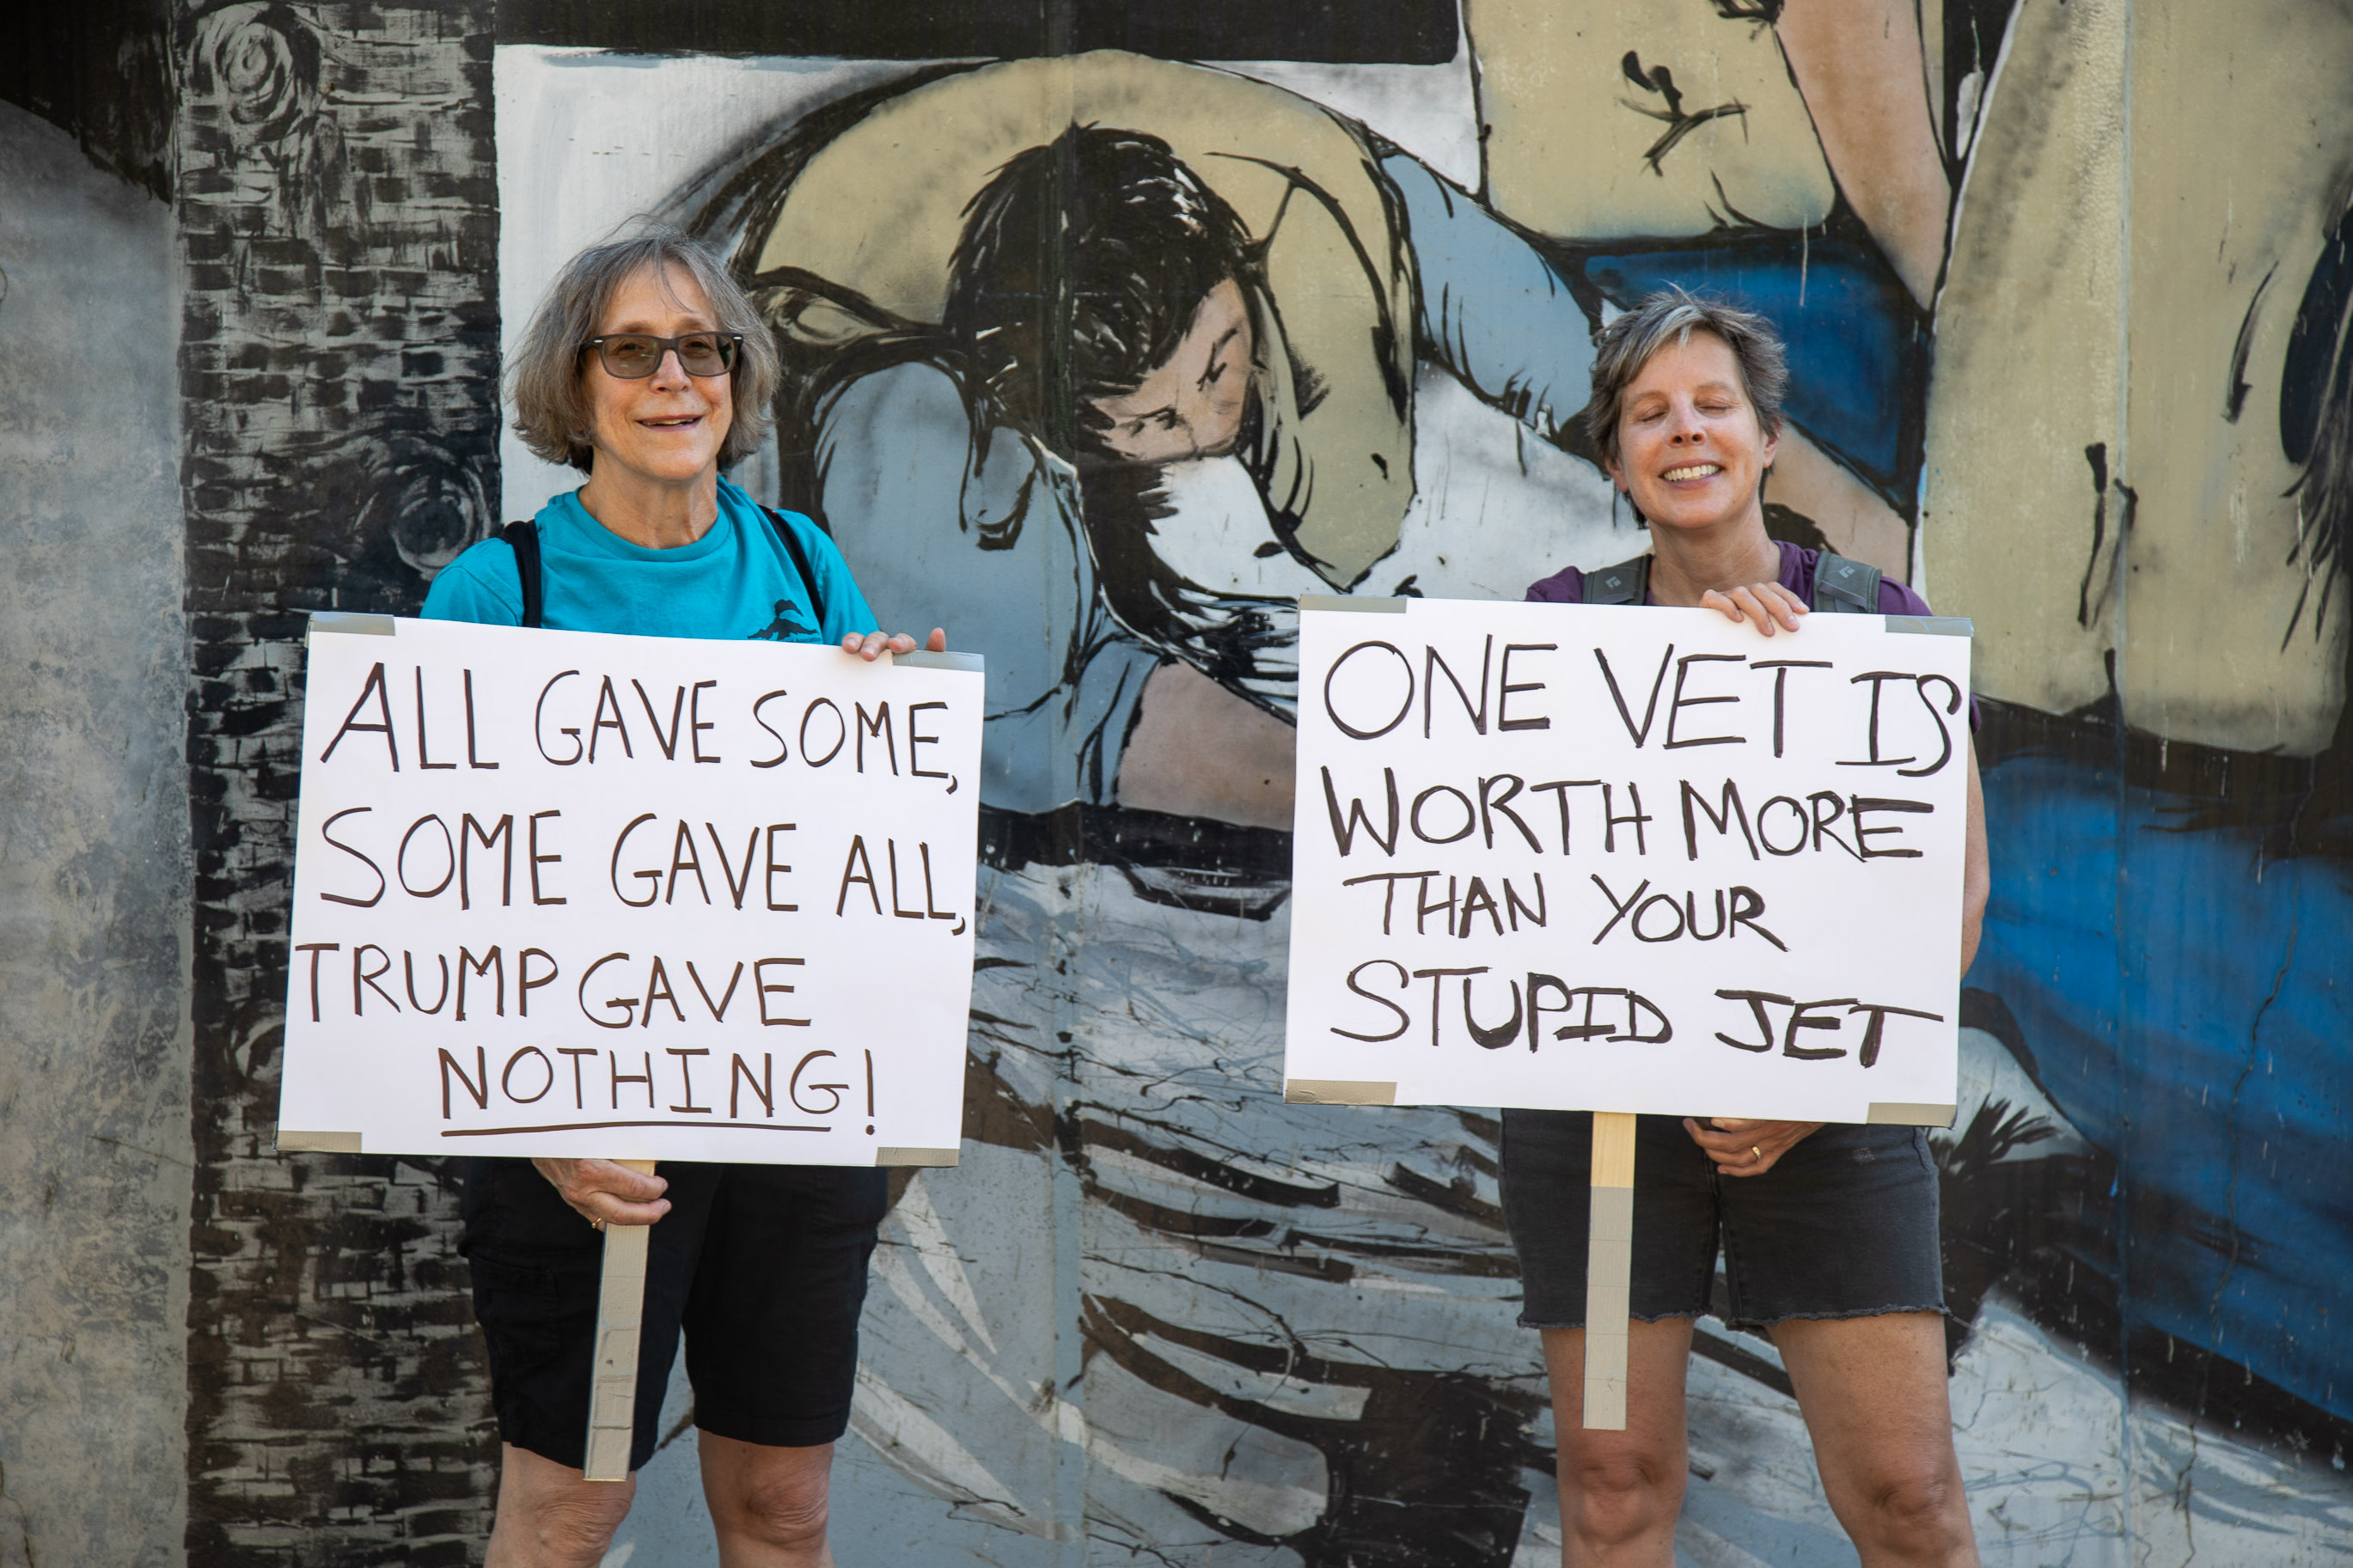 ALL GAVE SOME,
SOME GAVE ALL,
TRUMP GAVE
NOTHING!
ONE VET IS
WORTH MORE
THAN YOUR
STUPID JET